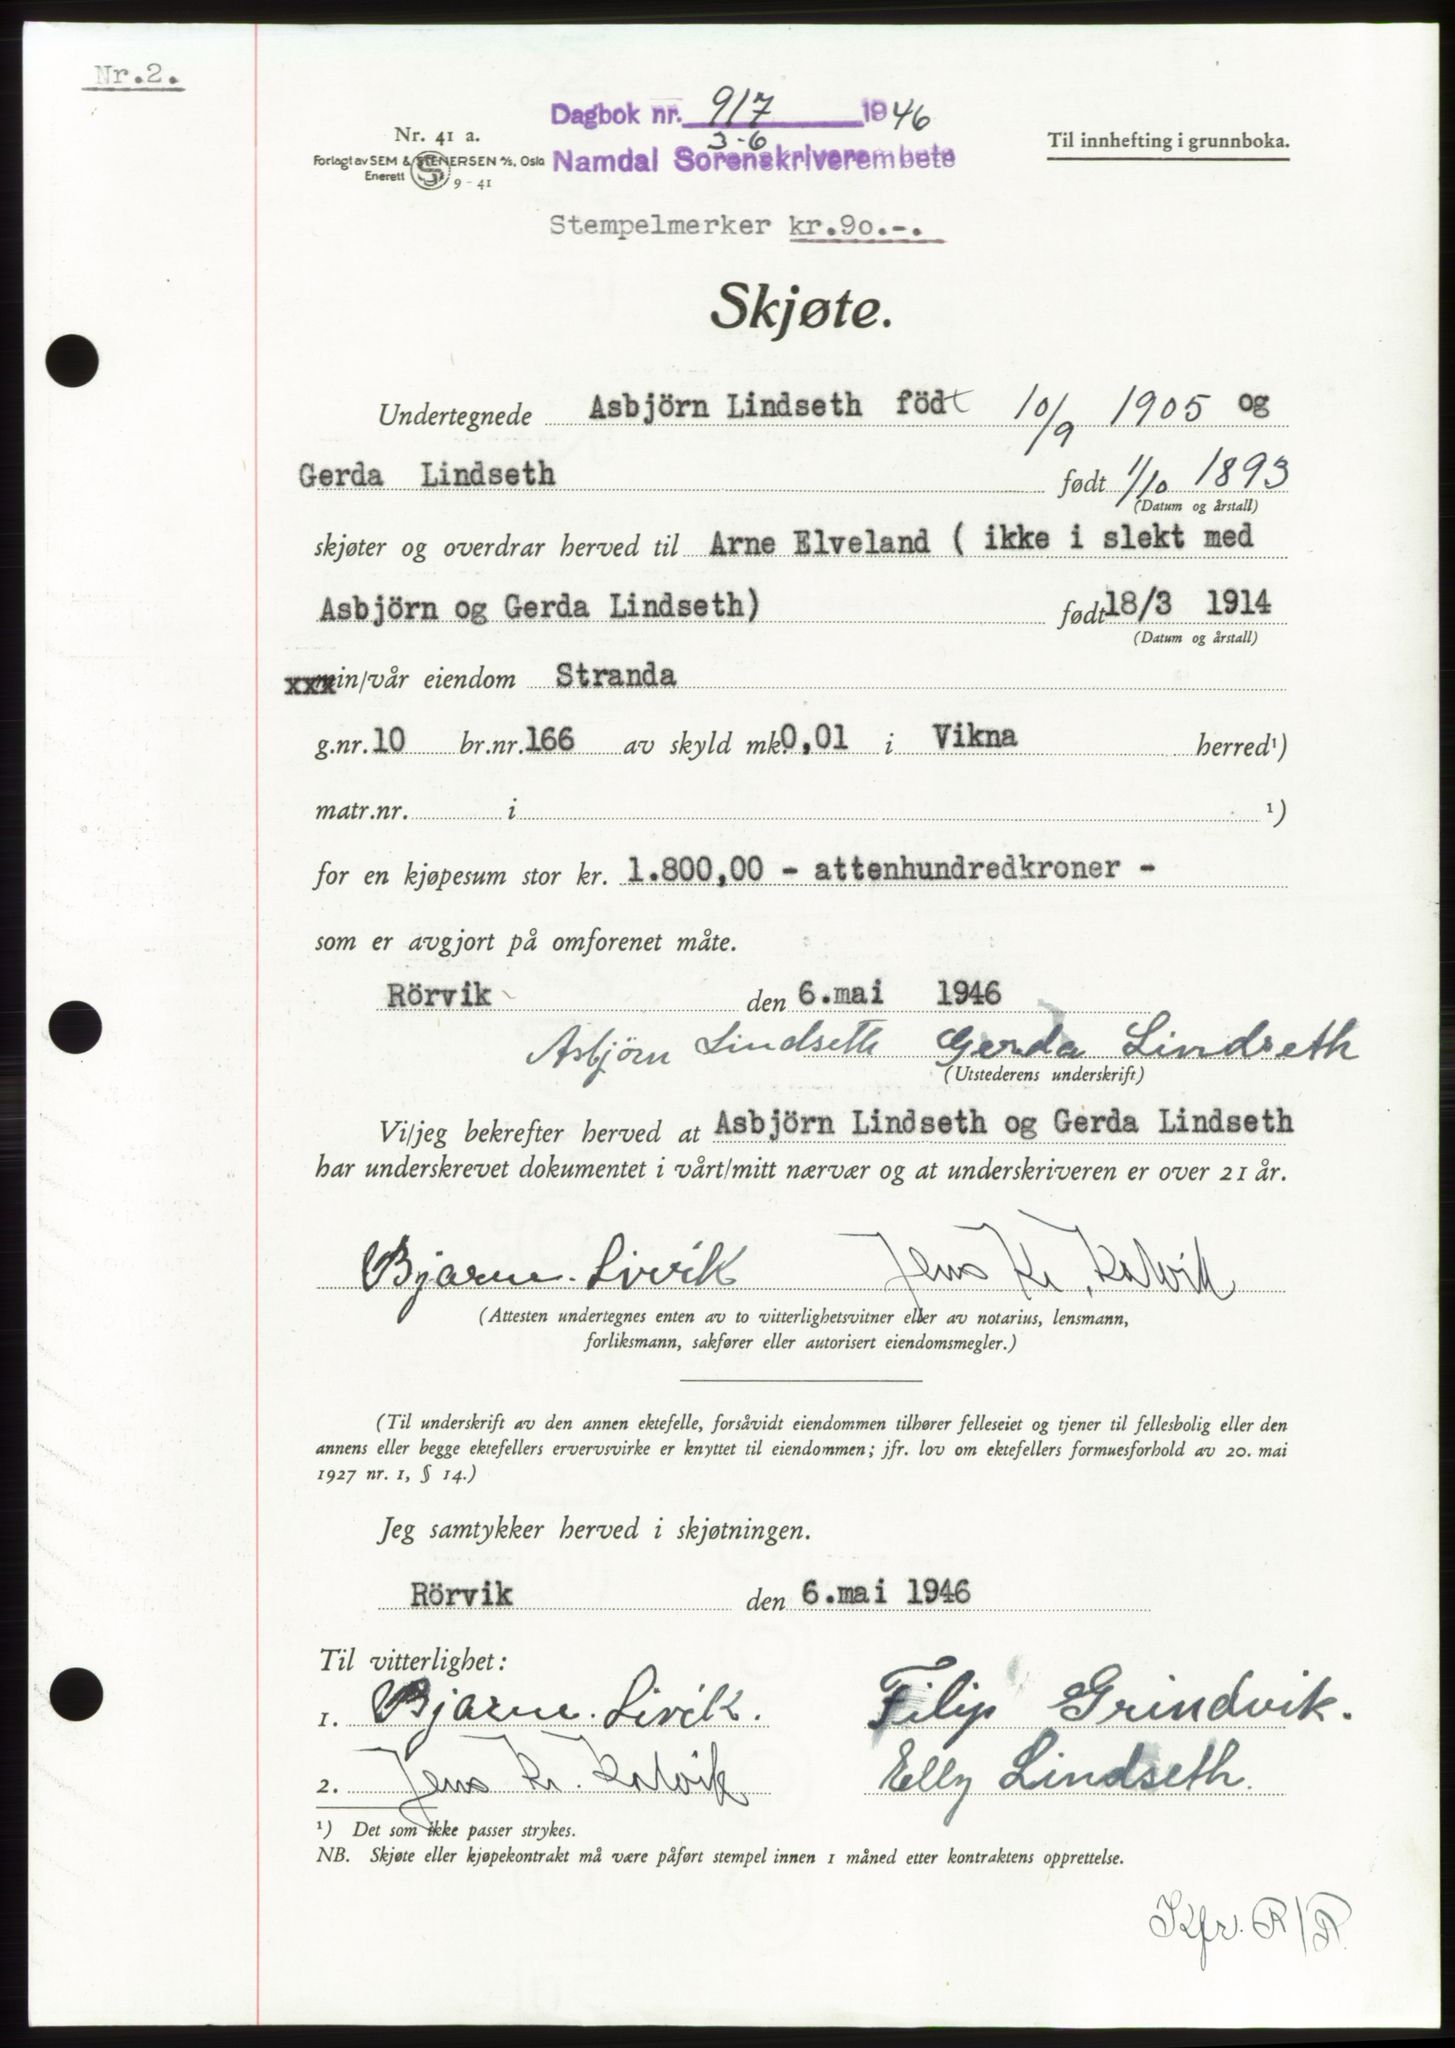 Nr.2.
Dagbok nr. 917 1946
3-6
Namdal Sorenskriverembete
Nr. 41 a.
Forlagt av SEM & STENERSEN A/S, Oslo
Enerett
9 - 41
Til innhefting i grunnboka.
Stempelmerker kr.90.-.
Skjøte.
Undertegnede Asbjörn Lindseth födt 10/9 1905 og
Gerda Lindseth født 1/10 1893
(Datum og årstall)
skjøter og overdrar herved til Arne Elveland ( ikke i slekt med
Asbjörn og Gerda Lindseth) født 18/3 1914
(Datum og årstall)
xxxin/vår eiendom Stranda
g.nr. 10 br.nr. 166 av skyld mk. 0,01 i Vikna herred¹)
matr.nr. i ¹)
for en kjøpesum stor kr. 1.800,00 - attenhundredkroner -
som er avgjort på omforenet måte.
Rörvik den 6.mai 1946
Asbjörn Lindseth Gerda Lindseth
(Utstederens underskrift)
Vi/jeg bekrefter herved at Asbjörn Lindseth og Gerda Lindseth
har underskrevet dokumentet i vårt/mitt nærvær og at underskriveren er over 21 år.
Bjarne Livik Jens Kr. Kalvik
(Attesten undertegnes enten av to vitterlighetsvitner eller av notarius, lensmann,
forliksmann, sakfører eller autorisert eiendomsmegler.)
(Til underskrift av den annen ektefelle, forsåvidt eiendommen tilhører felleseiet og tjener til fellesbolig eller den
annens eller begge ektefellers ervervsvirke er knyttet til eiendommen; jfr. lov om ektefellers formuesforhold av 20. mai
1927 nr. 1, § 14.)
Jeg samtykker herved i skjøtningen.
Rörvik den 6.mai 1946
Til vitterlighet:
1. Bjarne Livik. Filip Grindvik.
2. Jens Kr. Kalvik Elly Lindseth.
¹) Det som ikke passer strykes.
NB. Skjøte eller kjøpekontrakt må være påført stempel innen 1 måned etter kontraktens opprettelse.
Kfr. R/R